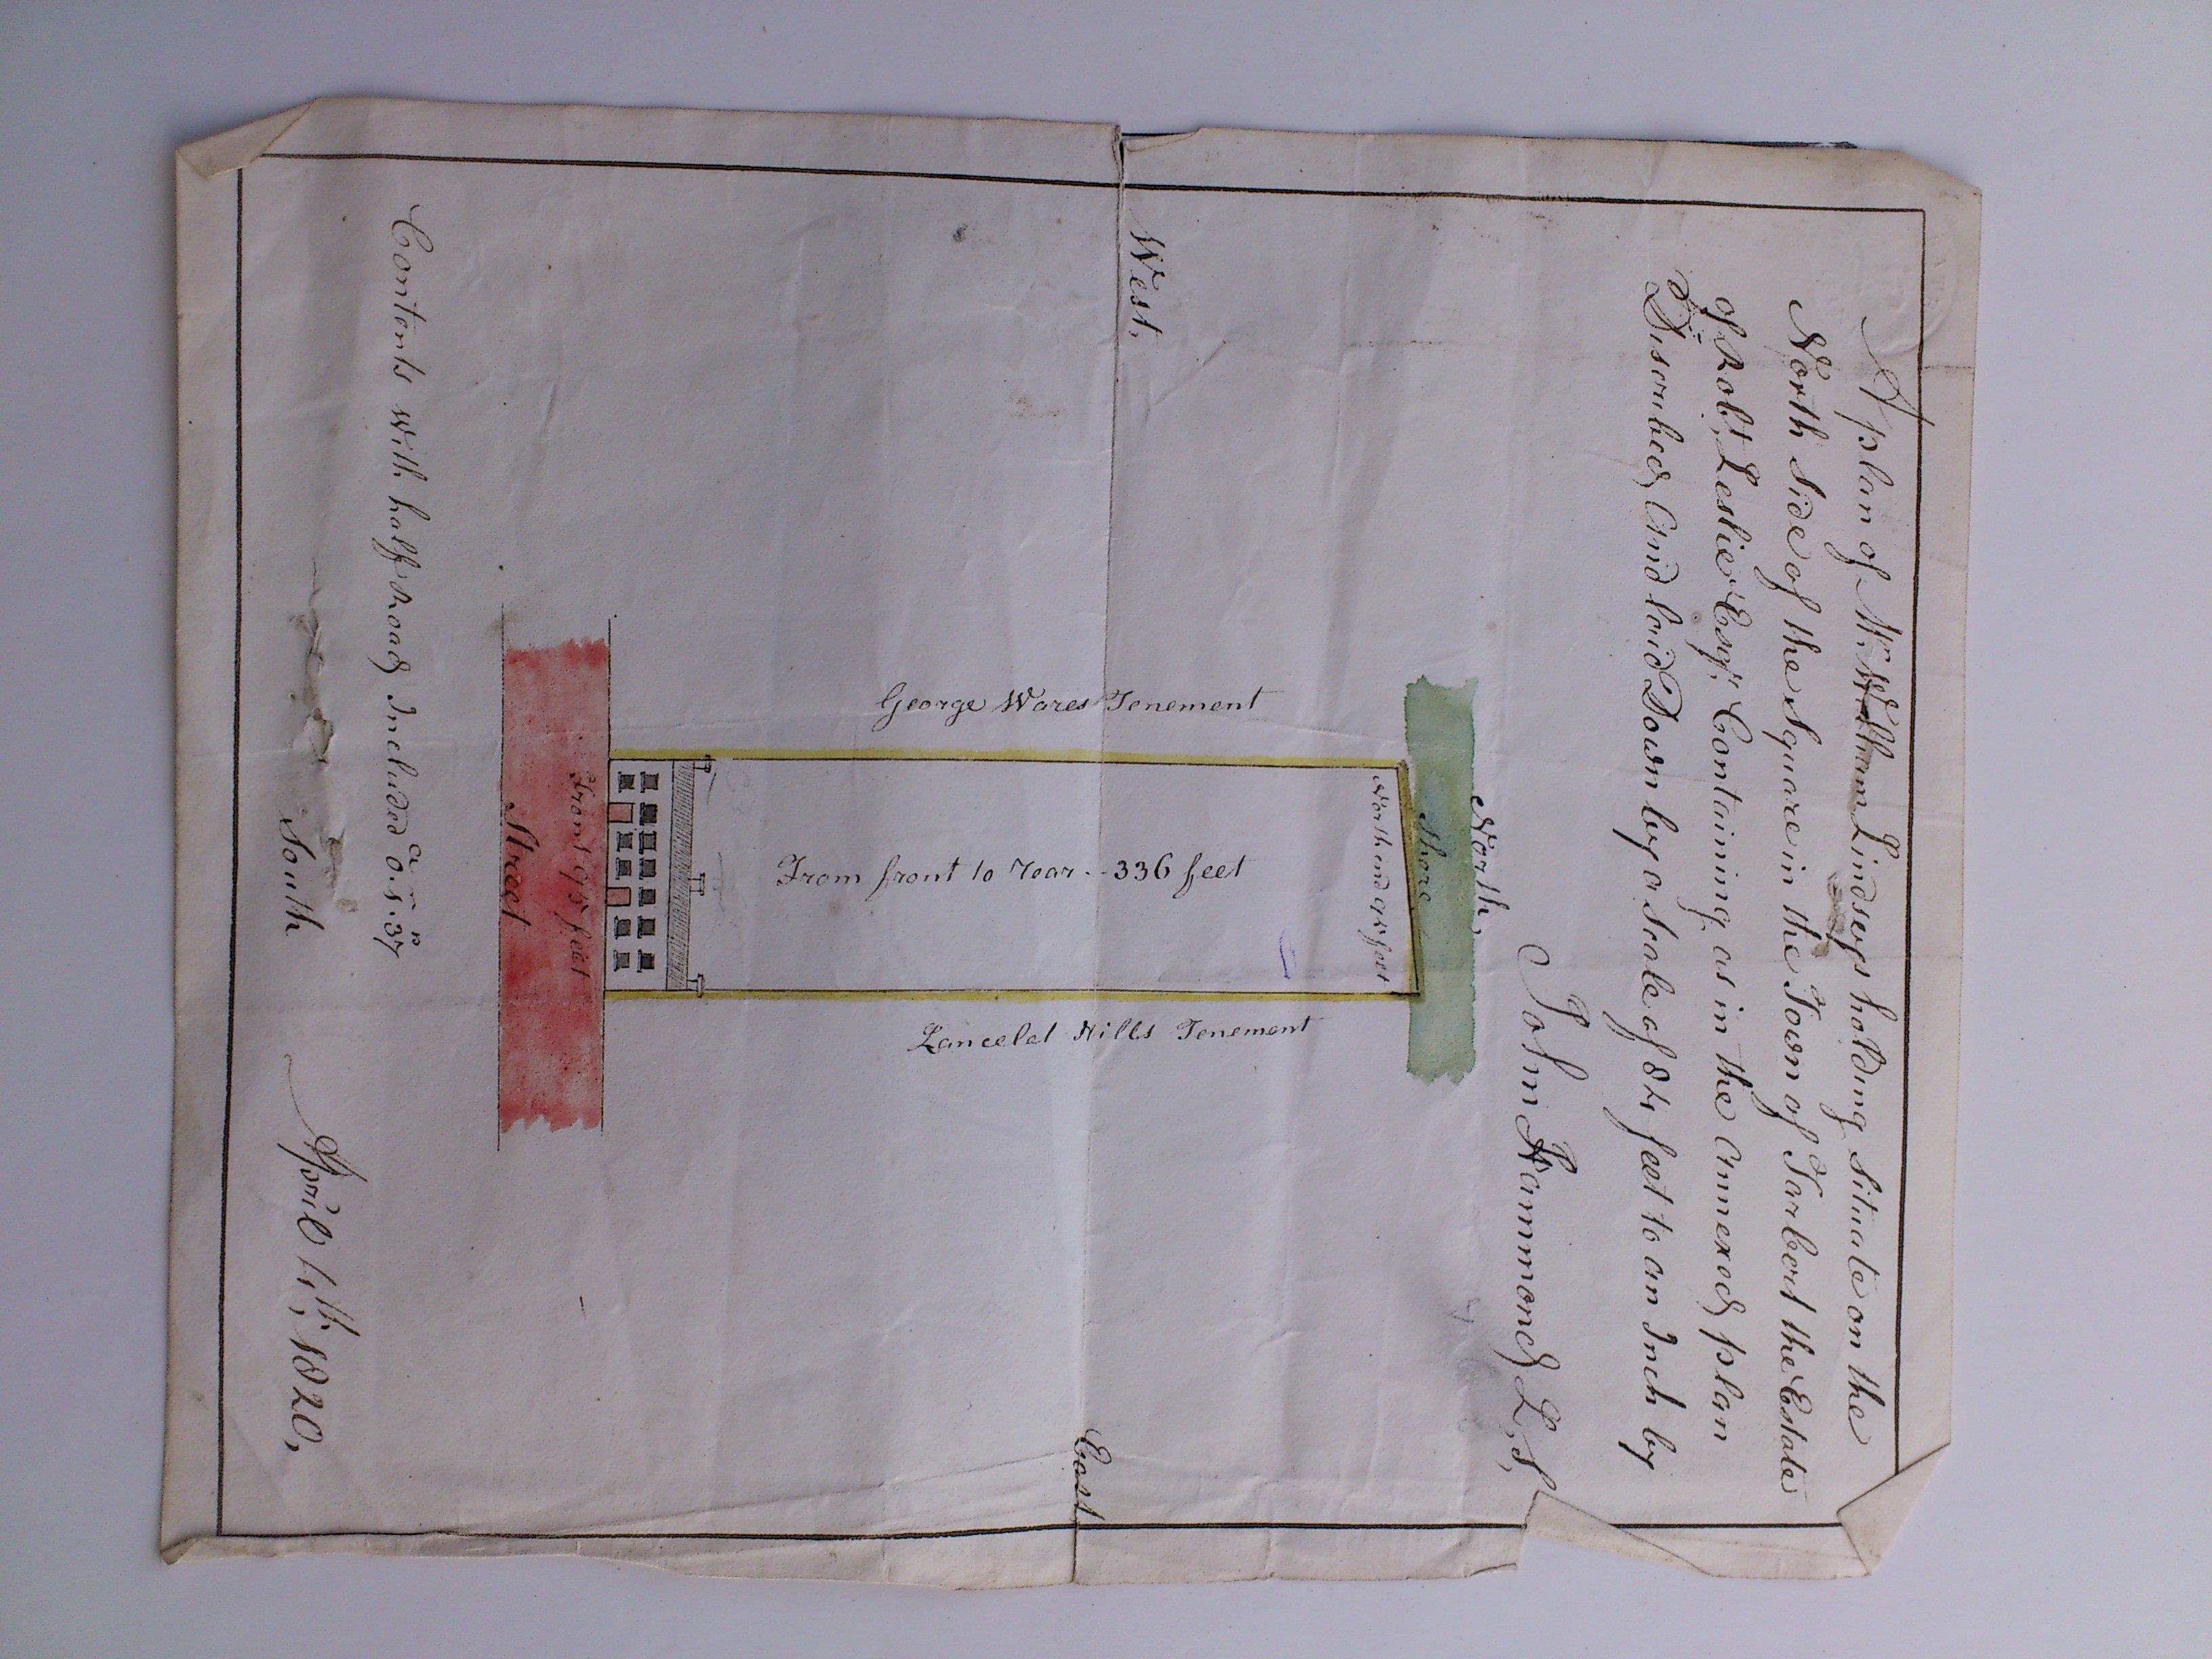 A plan of Mr. William Lindseys holding Situate on the
North Side of the Square in the Town of Tarbert the Estate
of Robt. Leslie Esqr. Containing as in the Annexed plan
Discribed, And laid Down by a Scale of 84 feet to an Inch by
John Hammond L, S,
North,
Shore
North end 98 feet
West,
George Wares Tenement
From front to rear - - 336 feet
Lancelet Hills Tenement
East
Front 95 feet
Street
Contents with half Road, Included
a r p
0. 1. 37
South
April 1,th, 1820,